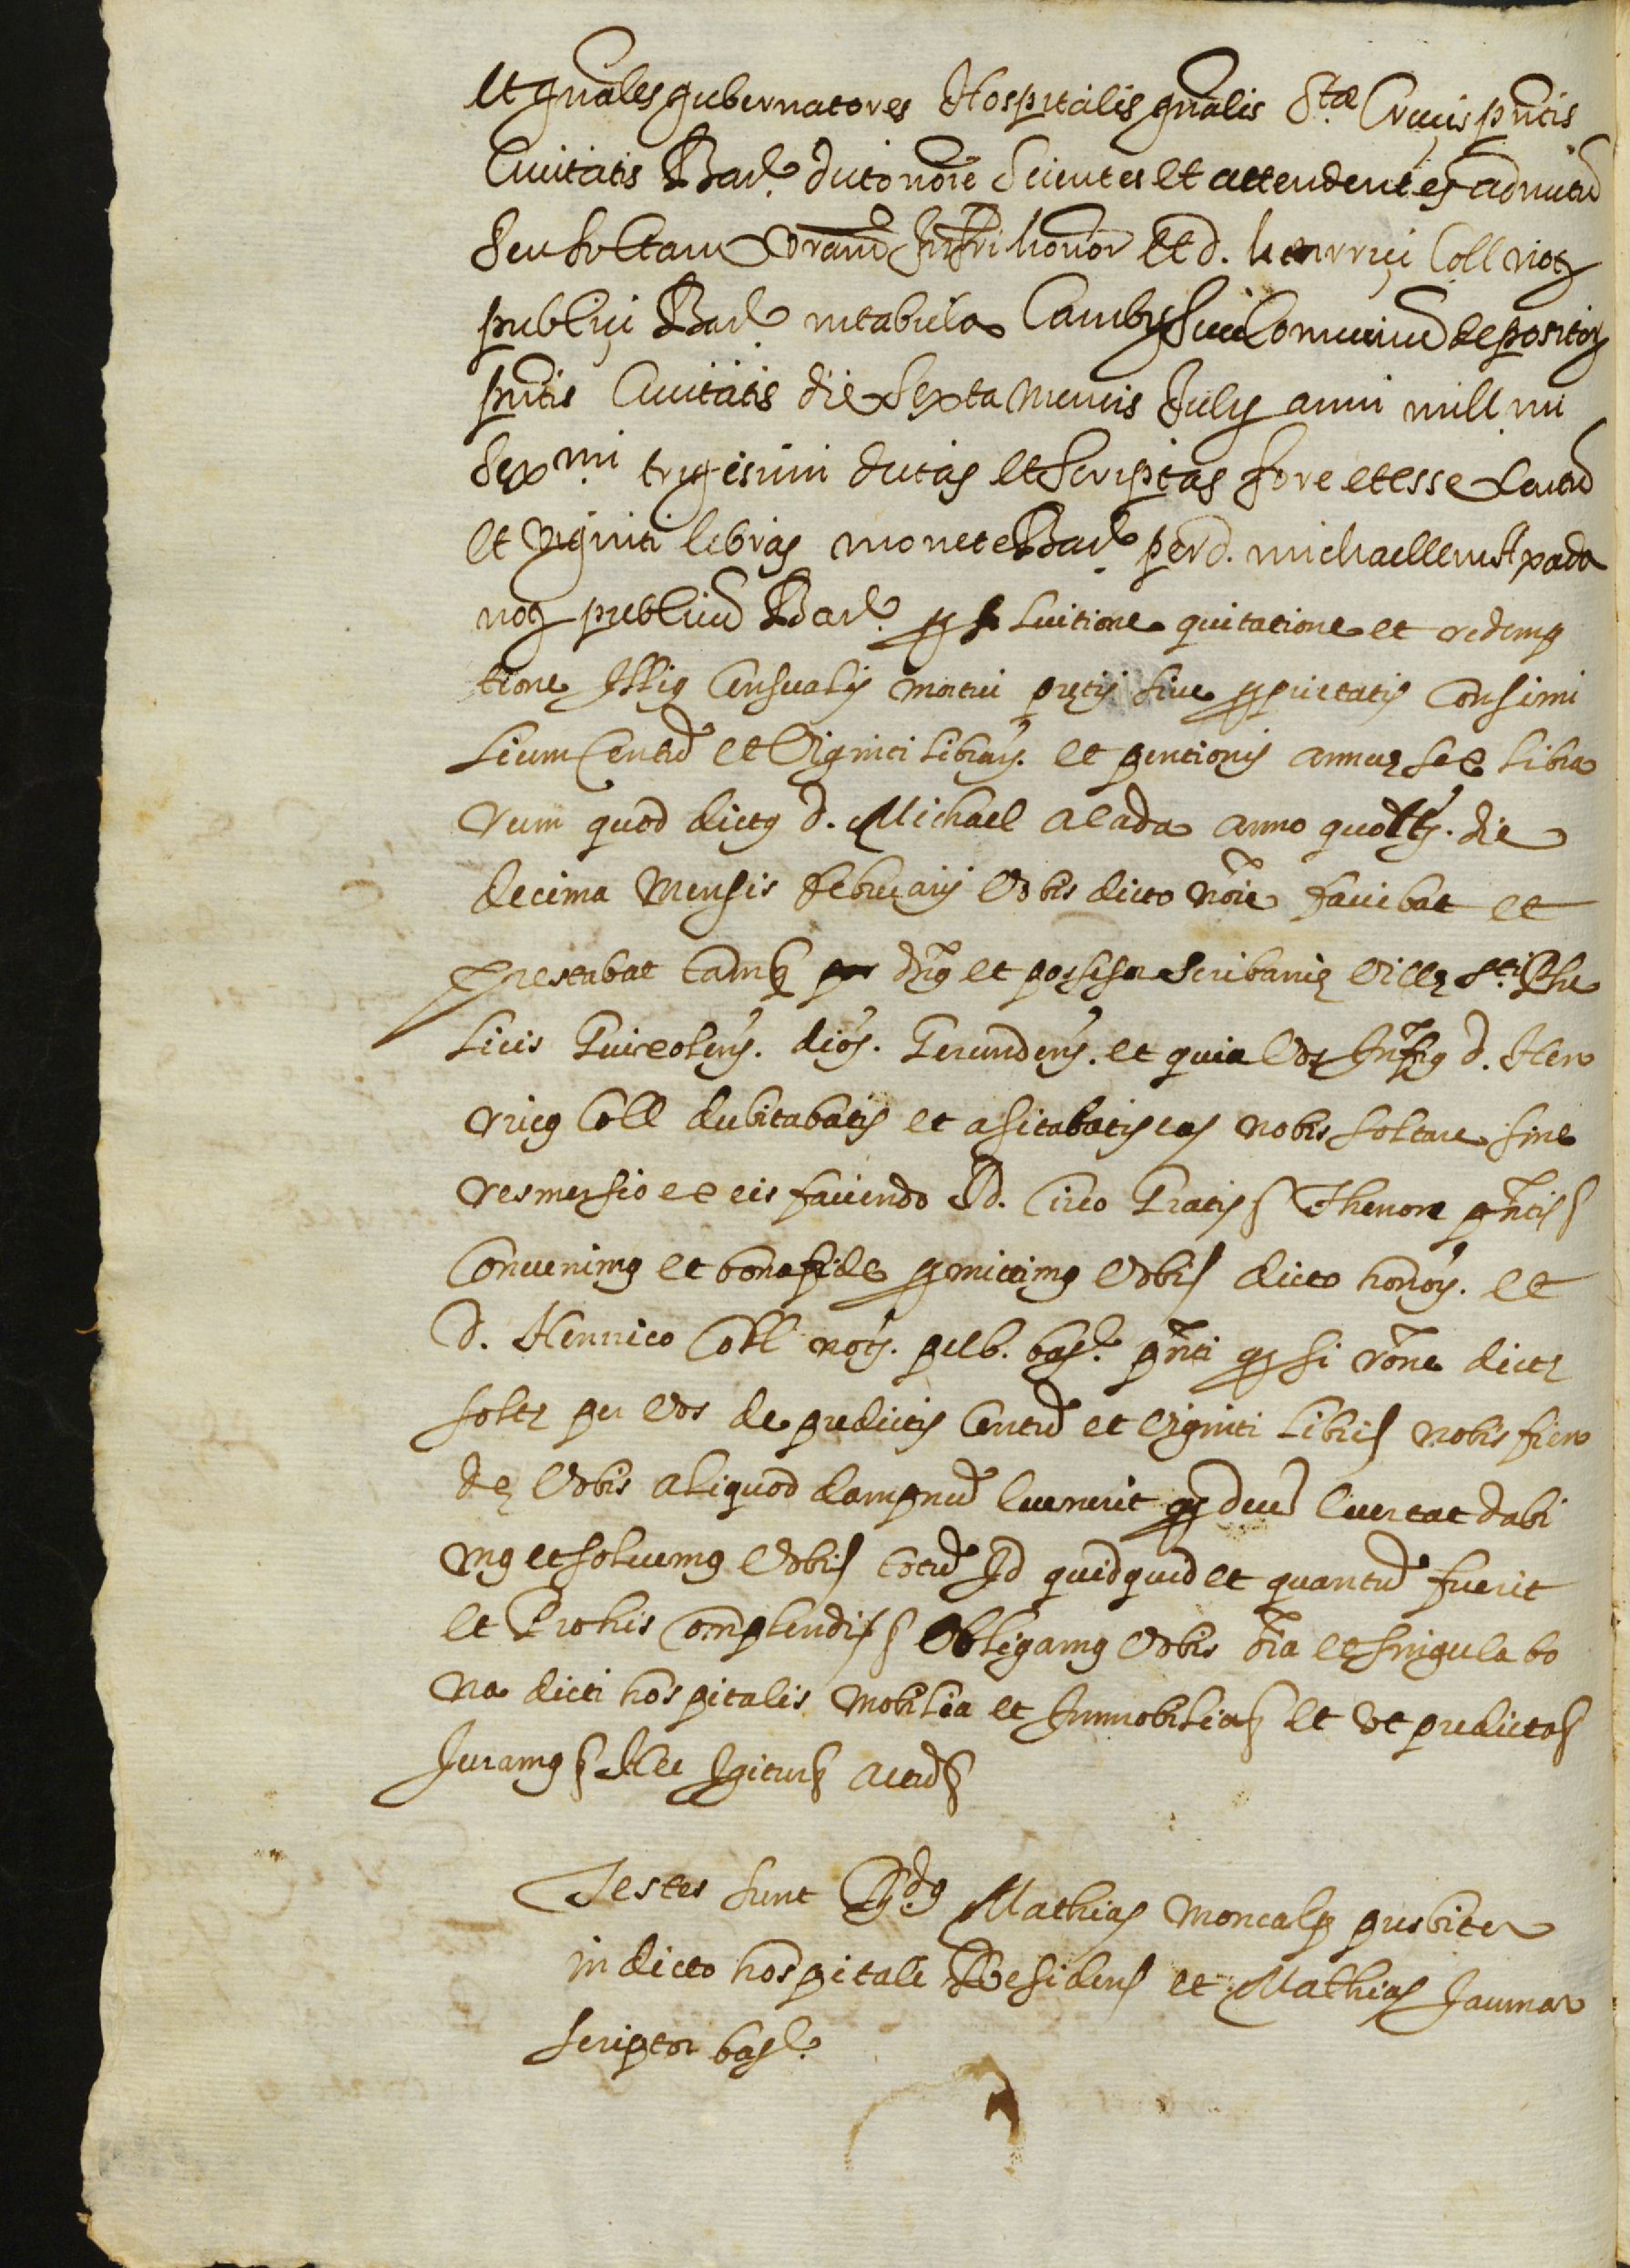 et gnales gubernatores Hospitalis gnalis Stæ Crucis pntis
Civitatis Barᵉ. dicto noīe Scientes et attendentes ad nutū
Seu soltam vrām Infrı honor et d. henrrici Coll not
publici Barᵉ in tabula Cambij Sive Comuniū depositor
pntis Civitatis die Sexta Mensis July anni mill mi
Sex mi trigesimi dictas et Scriptas fore et esse Centū
et viginti libras monete Barᵉ. per d. michaellem Axada
not publicū Barᵉ. pro luitione quitatione et redemp
tione Illiq Censualis mortui pretij sive proprietatis Consimi
lium Centū et Viginti librar. et pentionis annue sex libra
rum quod dictq d. Michael axada anno quolt. die
decima Mensis febrearij Vobis dicto nōie faciebat et
prestabat tamq dnq et possesor scribanie Ville Sti. Phe
licis Guixolens. dios. Gerundens. et quia Vos Infrq d. Hen
rricq Coll dubitabatis et asitabatis eas nobis soltare sine
resmersio ex eis faciendo Id. Circo Gratis § Thenore pntis §
Convenimq et bonafide promittimq Vobis dicto honor. et
d. Henrrico Coll not. pub. barᵉ. pnti q si rōne dicte
solte per Vos de predictis Centū et viginti libris nobis fien
de Vobis aliquod dampnū evenerit q deus evertat dabi
mq et solvemq Vobis totū Id quidquid et quantū fuerit
et Pro his complendis § Obligamq Vobis oīa et singula bo
na dicti hospitalis mobilia et Immobilia § et ut predicta §
Juramq § Hec Igitur § actū §
Testes sunt Rdq Mathias moncalp presbiter
in dicto hospitale Residens et Mathias Jaumar
scriptor barᵉ.